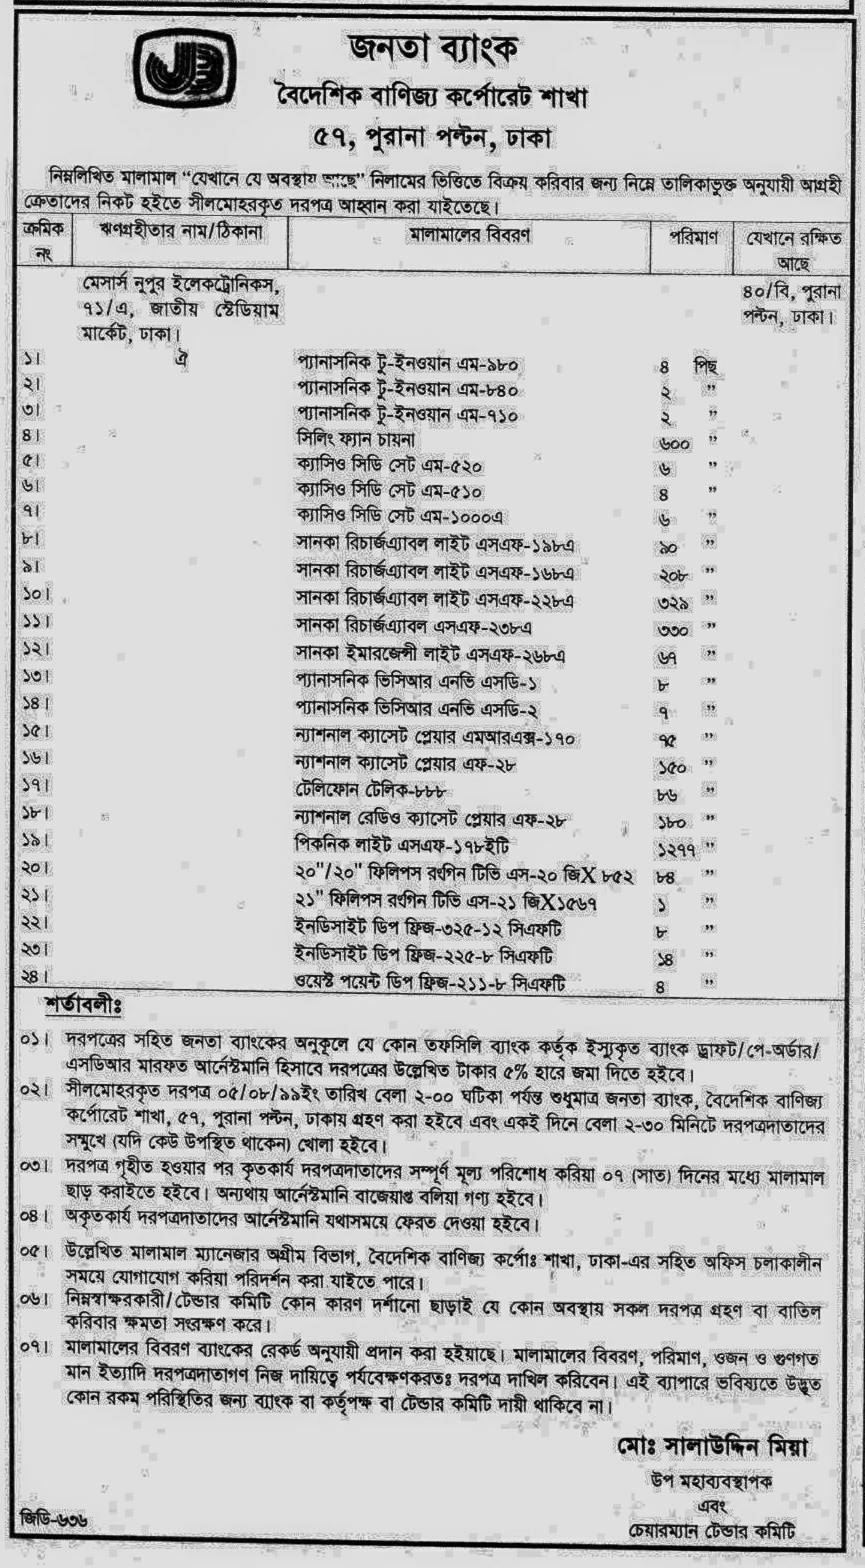 জনতা ব্যাংক
বৈদেশিক বাণিজ্য কর্পোরেট শাখা
৫৭, পুরানা পল্টন, ঢাকা
নিম্নলিখিত মালামাল “যেখানে যে অবস্থায় আছে” নিলামের ভিত্তিতে বিক্রয় করিবার জন্য নিম্নে তালিকাভুক্ত অনুযায়ী আগ্রহী
ক্রেতাদের নিকট হইতে সীলমোহরকৃত দরপত্র আহ্বান করা যাইতেছে।
ক্রমিক নং ঋণগ্রহীতার নাম/ঠিকানা মালামালের বিবরণ পরিমাণ যেখানে রক্ষিত আছে
মেসার্স নূপুর ইলেকট্রোনিকস, ৪০/বি, পুরানা
৭১/এ, জাতীয় স্টেডিয়াম পল্টন, ঢাকা।
মার্কেট, ঢাকা।
১। ঐ প্যানাসনিক টু-ইনওয়ান এম-১৮০ ৪ পিছ
২। প্যানাসনিক টু-ইনওয়ান এম-৮৪০ ২ ”
৩। প্যানাসনিক টু-ইনওয়ান এম-৭১০ ২ ”
৪। সিলিং ফ্যান চায়না ৬০০ ”
৫। ক্যাসিও সিডি সেট এম-৫২০ ৬ ”
৬। ক্যাসিও সিডি সেট এম-৫১০ ৪ ”
৭। ক্যাসিও সিডি সেট এম-১০০০এ ৬ ”
৮। সানকা রিচার্জএ্যাবল লাইট এসএফ-১৯৮এ ৯০ ”
৯। সানকা রিচার্জএ্যাবল লাইট এসএফ-১৬৮এ ২০৮ ”
১০। সানকা রিচার্জএ্যাবল লাইট এসএফ-২২৮এ ৩২৯ ”
১১। সানকা রিচার্জএ্যাবল এসএফ-২৩৮এ ৩৩০ ”
১২। সানকা ইমারজেন্সী লাইট এসএফ-২৬৮এ ৬৭ ”
১৩। প্যানাসনিক ভিসিআর এনভি এসডি-১ ৮ ”
১৪। প্যানাসনিক ভিসিআর এনভি এসডি-২ ৭ ”
১৫। ন্যাশনাল ক্যাসেট প্লেয়ার এমআরএক্স-১৭০ ৭৫ ”
১৬। ন্যাশনাল ক্যাসেট প্লেয়ার এফ-২৮ ১৫০ ”
১৭। টেলিফোন টেলিক-৮৮৮ ৮৬ ”
১৮। ন্যাশনাল রেডিও ক্যাসেট প্লেয়ার এফ-২৮ ১৮০ ”
১৯। পিকনিক লাইট এসএফ-১৭৮ইটি ১২৭৭ ”
২০। ২০"/২০" ফিলিপস রংগিন টিভি এস-২০ জিX ৮৫২ ৮৪ ”
২১। ২১" ফিলিপস রংগিন টিভি এস-২১ জিX১৫৬৭ ১ ”
২২। ইনডিসাইট ডিপ ফ্রিজ-৩২৫-১২ সিএফটি ৮ ”
২৩। ইনডিসাইট ডিপ ফ্রিজ-২২৫-৮ সিএফটি ১৪ ”
২৪। ওয়েস্ট পয়েন্ট ডিপ ফ্রিজ-২১১-৮ সিএফটি ৪ ”
শর্তাবলীঃ
০১। দরপত্রের সহিত জনতা ব্যাংকের অনুকূলে যে কোন তফসিলি ব্যাংক কর্তৃক ইস্যুকৃত ব্যাংক ড্রাফট/পে-অর্ডার/
এসডিআর মারফত আর্নেস্টমানি হিসাবে দরপত্রের উল্লেখিত টাকার ৫% হারে জমা দিতে হইবে।
০২। সীলমোহরকৃত দরপত্র ০৫/০৮/৯৯ইং তারিখ বেলা ২-০০ ঘটিকা পর্যন্ত শুধুমাত্র জনতা ব্যাংক, বৈদেশিক বাণিজ্য
কর্পোরেট শাখা, ৫৭, পুরানা পল্টন, ঢাকায় গ্রহণ করা হইবে এবং একই দিনে বেলা ২-৩০ মিনিটে দরপত্রদাতাদের
সম্মুখে (যদি কেউ উপস্থিত থাকেন) খোলা হইবে।
০৩। দরপত্র গৃহীত হওয়ার পর কৃতকার্য দরপত্রদাতাদের সম্পূর্ণ মূল্য পরিশোধ করিয়া ০৭ (সাত) দিনের মধ্যে মালামাল
ছাড় করাইতে হইবে। অন্যথায় আর্নেস্টমানি বাজেয়াপ্ত বলিয়া গণ্য হইবে।
০৪। অকৃতকার্য দরপত্রদাতাদের আর্নেস্টমানি যথাসময়ে ফেরত দেওয়া হইবে।
০৫। উল্লেখিত মালামাল ম্যানেজার অগ্রীম বিভাগ, বৈদেশিক বাণিজ্য কর্পোঃ শাখা, ঢাকা-এর সহিত অফিস চলাকালীন
সময়ে যোগাযোগ করিয়া পরিদর্শন করা যাইতে পারে।
০৬। নিম্নস্বাক্ষরকারী/টেন্ডার কমিটি কোন কারণ দর্শানো ছাড়াই যে কোন অবস্থায় সকল দরপত্র গ্রহণ বা বাতিল
করিবার ক্ষমতা সংরক্ষণ করে।
০৭। মালামালের বিবরণ ব্যাংকের রেকর্ড অনুযায়ী প্রদান করা হইয়াছে। মালামালের বিবরণ, পরিমাণ, ওজন ও গুণগত
মান ইত্যাদি দরপত্রদাতাগণ নিজ দায়িত্বে পর্যবেক্ষণকরতঃ দরপত্র দাখিল করিবেন। এই ব্যাপারে ভবিষ্যতে উদ্ভূত
কোন রকম পরিস্থিতির জন্য ব্যাংক বা কর্তৃপক্ষ বা টেন্ডার কমিটি দায়ী থাকিবে না।
মোঃ সালাউদ্দিন মিয়া
উপ মহাব্যবস্থাপক
এবং
জিডি-৬৩৬
চেয়ারম্যান টেন্ডার কমিটি